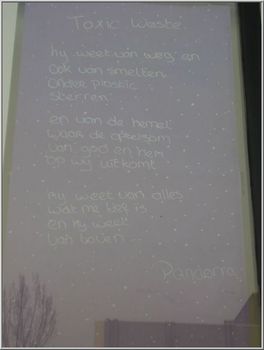 Toxic Waste
hy weet van weg en
ook van smelten
onder plastic
sterren
en van de hemel
waar de optelsom
van god en hem
op wy uitkomt
hy weet van alles
wat me lief is
en hy weet
van boven ...